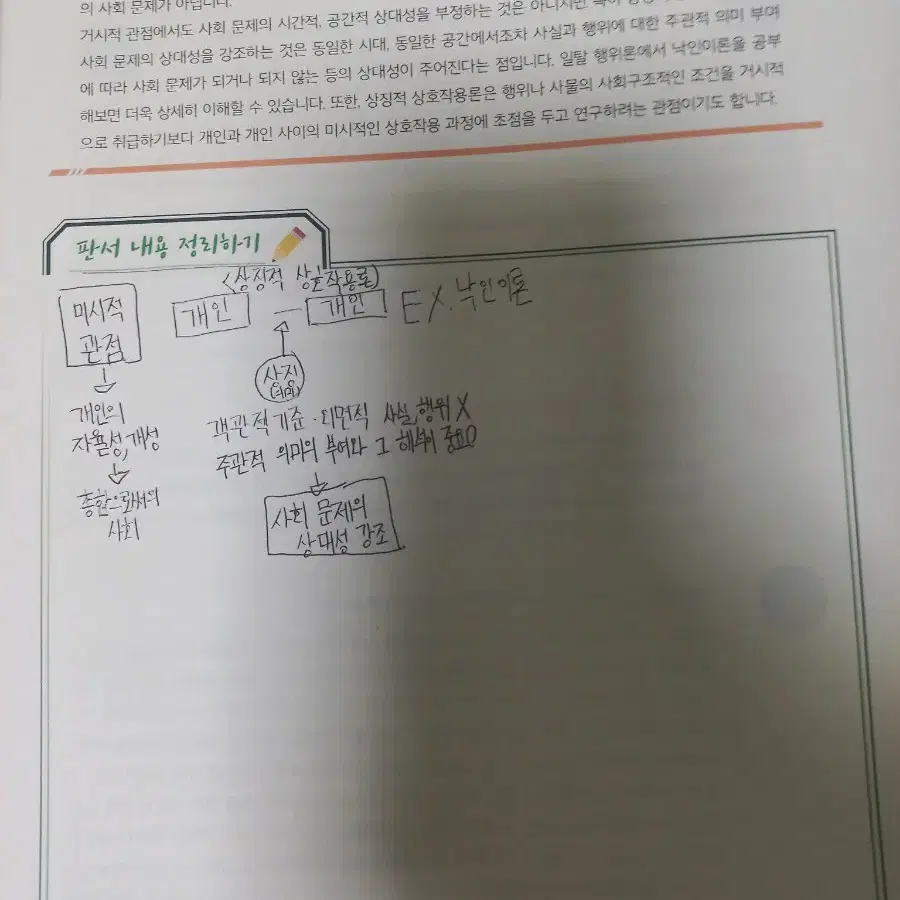 의 사회 문제가 아닙니다.
거시적 관점에서도 사회 문제의 시간적, 공간적 상대성을 부정하는 것은 아니지만
사회 문제의 상대성을 강조하는 것은 동일한 시대, 동일한 공간에서조차 사실과 행위에 대한 주관적 의미 부여
에 따라 사회 문제가 되거나 되지 않는 등의 상대성이 주어진다는 점입니다. 일탈 행위론에서 낙인이론을 공부
해보면 더욱 상세히 이해할 수 있습니다. 또한, 상징적 상호작용론은 행위나 사물의 사회구조적인 조건을 거시적
으로 취급하기보다 개인과 개인 사이의 미시적인 상호작용 과정에 초점을 두고 연구하려는 관점이기도 합니다.
판서 내용 정리하기
<상징적 상호작용론>
미시적
관점
개인 개인 EX.낙인이론
상징
개인의
자율성,개성
객관적 기준· 사실,행위 X
주관적 의미의 부여와 그 해석이 중요
총합으로써의
사회
사회 문제의
상대성 강조